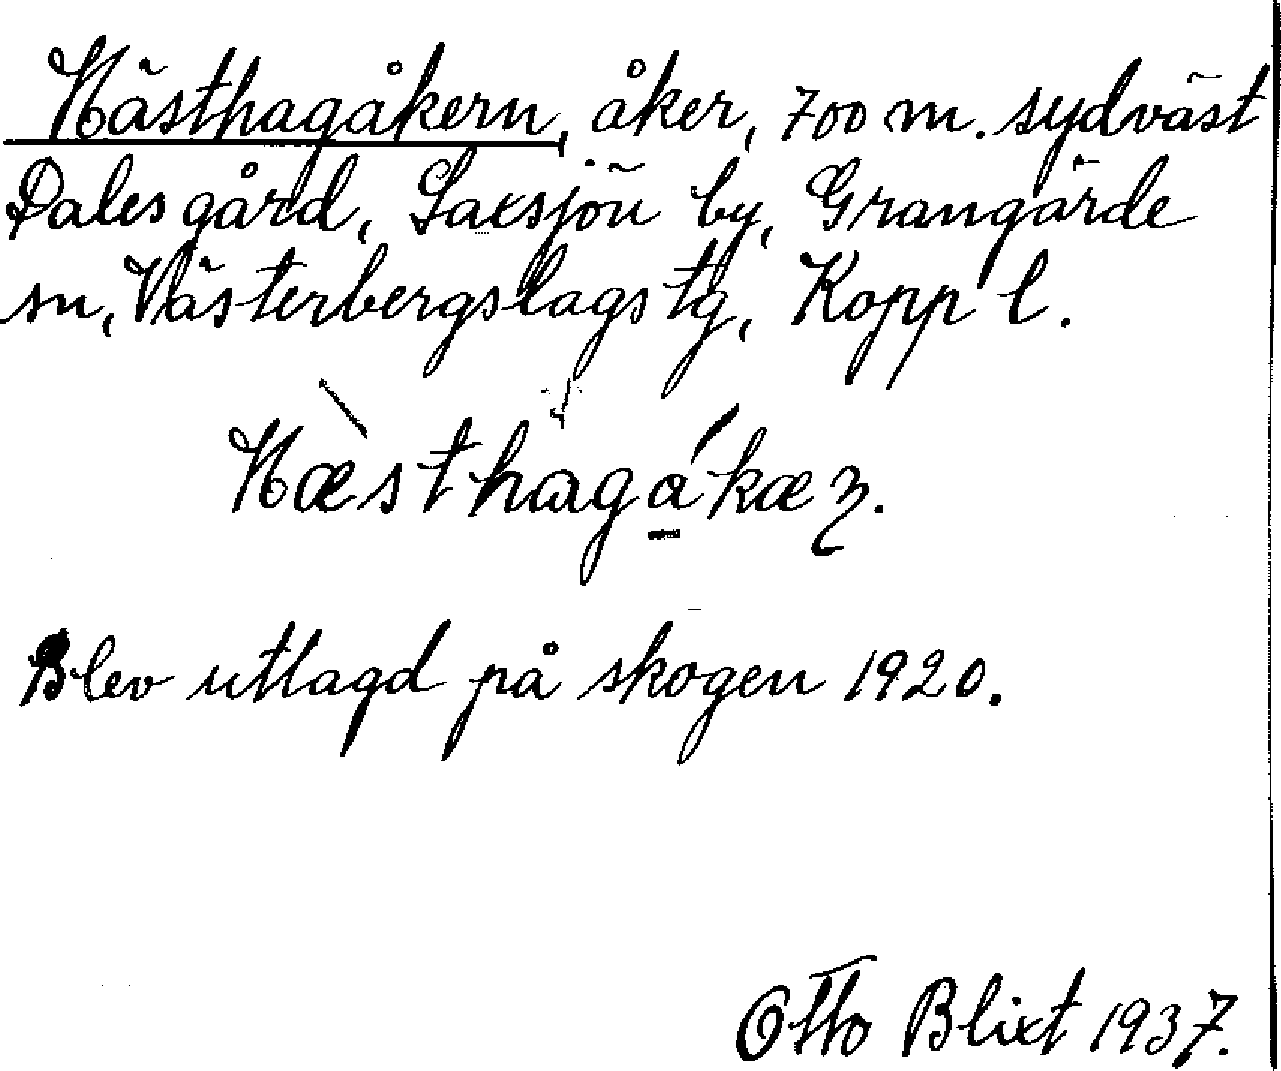 Hästhagåkern, åker, 700 m. sydväst
Dales gård, Saxsjön by, Grangärde
sn, Västerbergslags tg, Kopp l.
Hæsthagåkæ
Blev utlagd på skogen 1920.
Otto Blixt 1937.